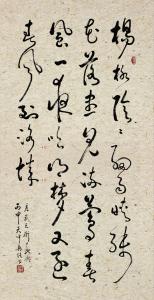 楊柳陰陰細雨晴殘
花落盡見流鶯春
風一夜吹鄉夢又逐
春風到洛城
武元衡
丙申